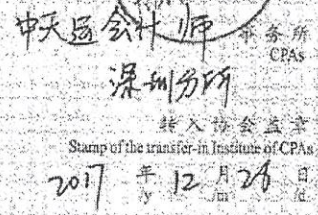 中天运会计师 事务所
CPAs
深圳分所
转入协会盖章
Stamp of the transfer-in Institute of CPAs
2017 年 12 月 28 日
y m d